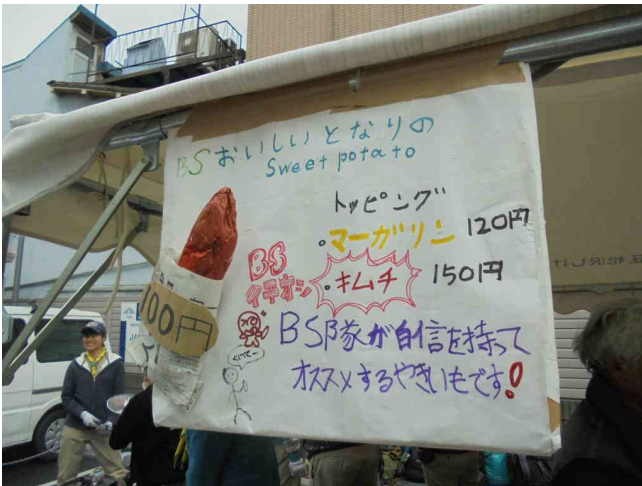 BSおいしいとなりの
Sweet potato
トッピング
・マーガリン 120円
BS
イチオシ
・キムチ 150円
100円
BS隊が自信を持って
オススメするやきいもです!